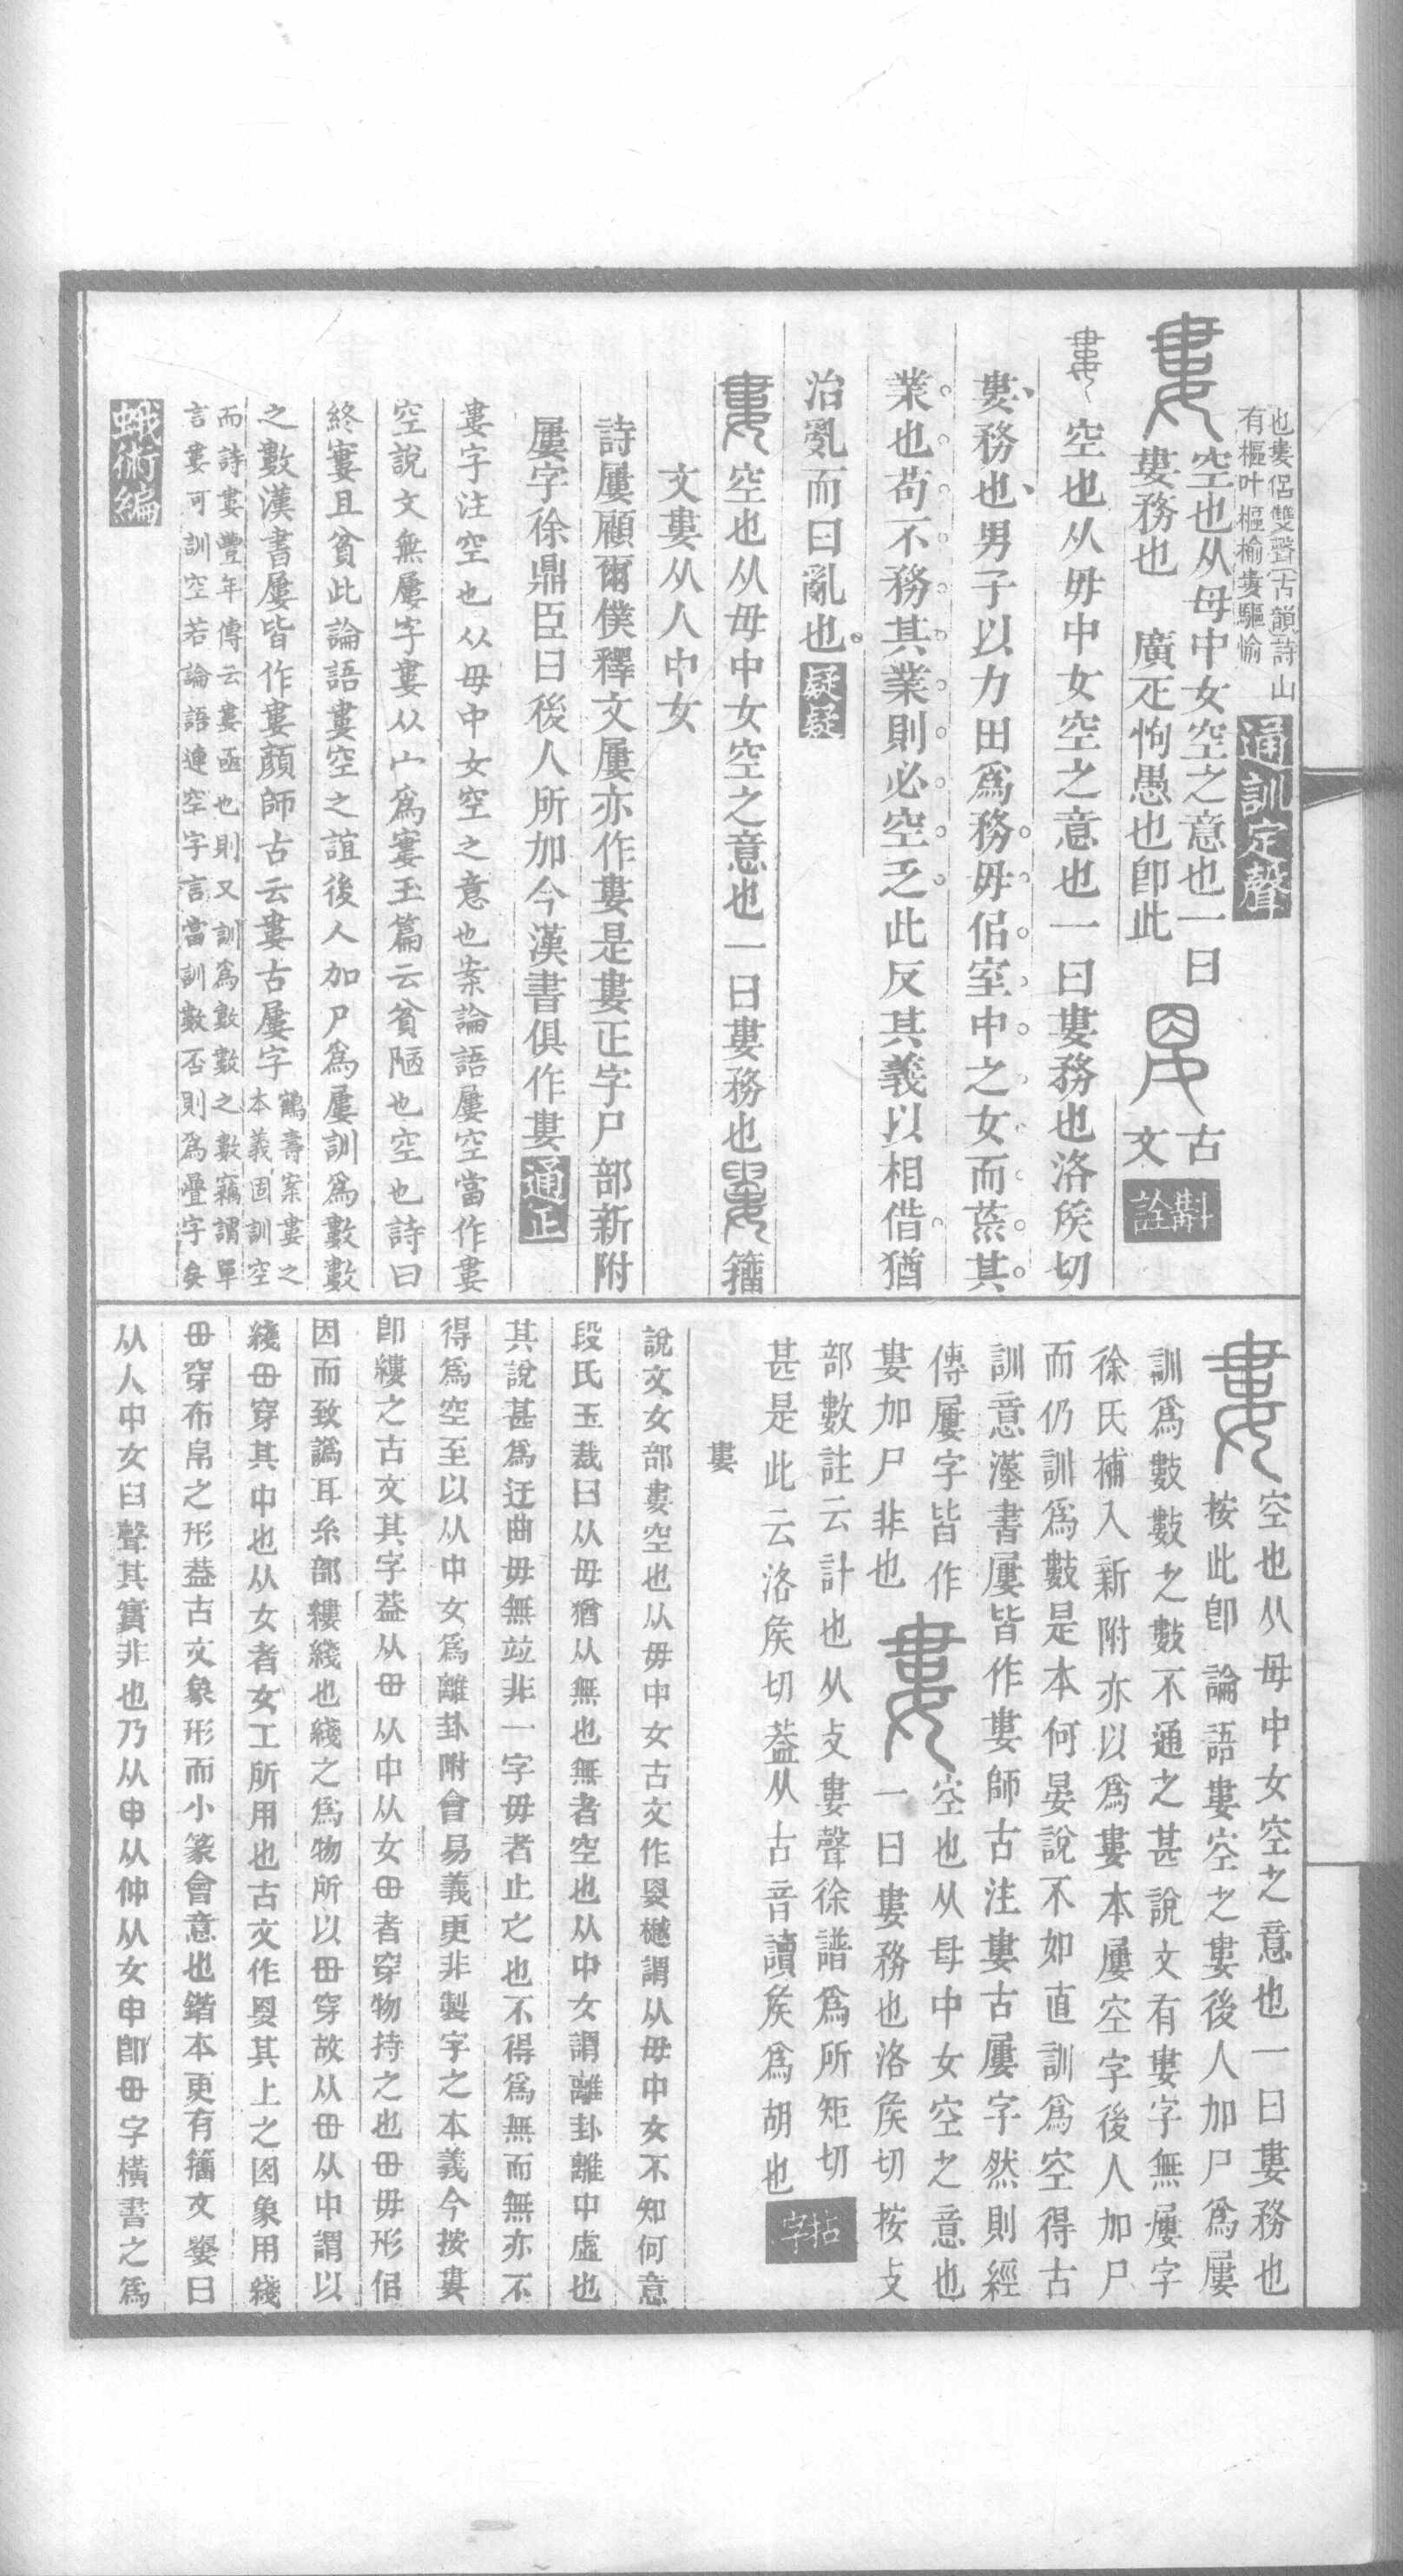 也婁侶雙聲古韻詩山
有樞叶樞榆婁驅愉
通訓定聲
婁
空也从母中女空之意也一曰
婁務也　廣疋怐愚也卽此
古
文
斠詮
婁
空也从毋中女空之意也一曰婁務也洛矦切
婁務也男子以力田爲務毋侶室中之女而蒸其
業也苟不務其業則必空乏此反其義以相借猶
治亂而曰亂也
疑疑
婁
空也从毋中女空之意也一曰婁務也
籒
文婁从人中女
詩屢顧爾僕釋文屢亦作婁是婁正字尸部新附
屢字徐鼎臣曰後人所加今漢書俱作婁
通正
婁字注空也从毋中女空之意也案論語屢空當作婁
空說文無屢字婁从宀爲寠玉篇云貧陋也空也詩曰
終寠且貧此論語婁空之誼後人加尸爲屢訓爲數數
之數漢書屢皆作婁顏師古云婁古屢字
鶴壽案婁之
本義固訓空
而詩婁豐年傳云婁亟也則又訓爲數數之數竊謂單
言婁可訓空若論語連空字言當訓數否則爲疊字矣
蛾術編
婁
空也从毋中女空之意也一曰婁務也
按此卽論語婁空之婁後人加尸爲屢
訓爲數數之數不通之甚說文有婁字無屢字
徐氏補入新附亦以爲婁本屢空字後人加尸
而仍訓爲數是本何晏說不如直訓爲空得古
訓意漢書屢皆作婁師古注婁古屢字然則經
傳屢字皆作
婁加尸非也
婁
空也从毋中女空之意也
一曰婁務也洛矦切按攴
部數註云計也从攴婁聲徐譜爲所矩切
甚是此云洛矦切葢从古音讀矦爲胡也
拈字
婁
說文女部婁空也从毋中女古文作𡜰樾謂从毋中女不知何意
段氏玉裁曰从毋猶从無也無者空也从中女謂離卦離中虛也
其說甚爲迂曲毋無竝非一字毋者止之也不得爲無而無亦不
得爲空至以从中女爲離卦附會易義更非製字之本義今按婁
卽縷之古文其字葢从毌从中从女毌者穿物持之也毌毋形侶
因而致譌耳糸部縷綫也綫之爲物所以毌穿故从毌从中謂以
綫毌穿其中也从女者女工所用也古文作𡜰其上之囟象用綫
毌穿布帛之形葢古文象形而小篆會意也鍇本更有籒文婁曰
从人中女臼聲其實非也乃从申从仲从女申卽毌字橫書之爲